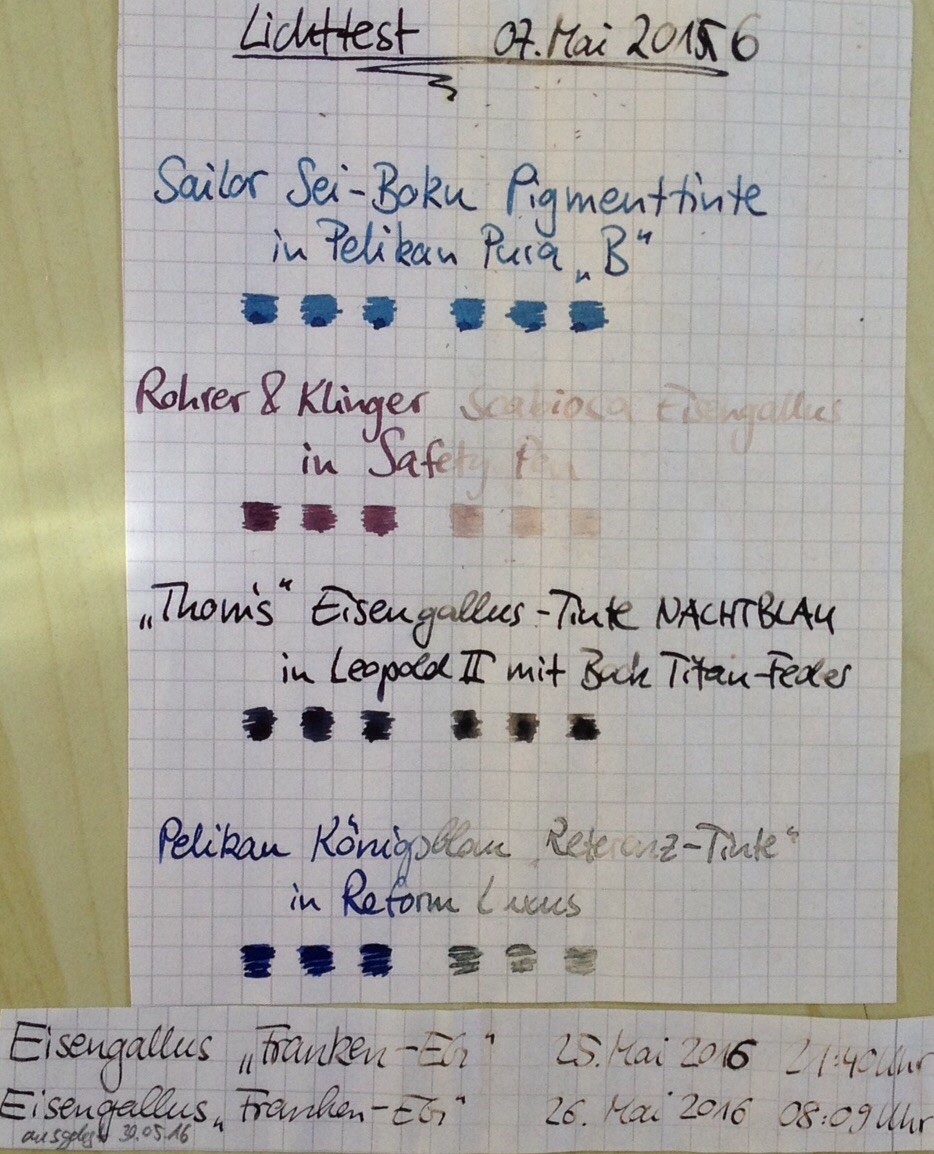 Lichttest 07. Mai 2016
Sailor Sei-Boku Pigmenttinte
in Pelikan Pura „B“
Rohrer & Klinger Scabiosa Eisengallus
in Safety Pen
„Thom's“ Eisengallus-Tinte NACHTBLAU
in Leopold II mit Bock Titan-Feder
Pelikan Königsblau „Referenz-Tinte“
in Reform Luxus
Eisengallus „Franken-EG“ 25. Mai 2016 21:40 Uhr
Eisengallus „Franken-EG“ 26. Mai 2016 08:09 Uhr
ausgelegt 30.05.16